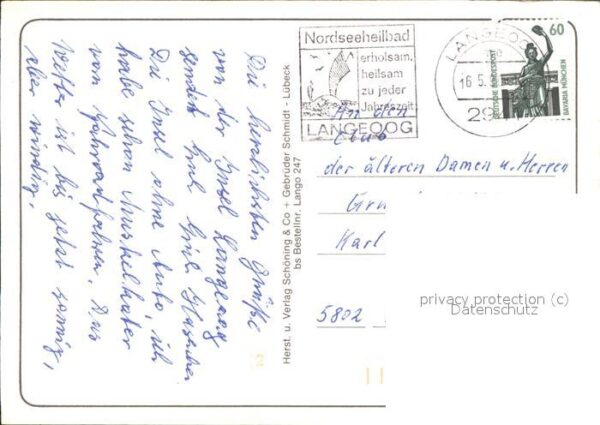 Die herzlichsten Grüße
von der Insel Langeoog
sendet Euch
Die Insel ohne Auto, ich
habe schon Muskelkater
vom Fahrradfahren. Das
Wetter ist bis jetzt sonnig,
aber windig.
Herst. u. Verlag Schöning & Co + Gebrüder Schmidt - Lübeck
bs Bestellnr. Lango 247
Nordseeheilbad
erholsam,
heilsam
zu jeder
Jahreszeit
LANGEOOG
LANGEOOG
16.5.
29
60
DEUTSCHE BUNDESPOST
BAVARIA MÜNCHEN
An den
Club
der älteren Damen u. Herren
Gru
Karl
5802
privacy protection (c)
Datenschutz